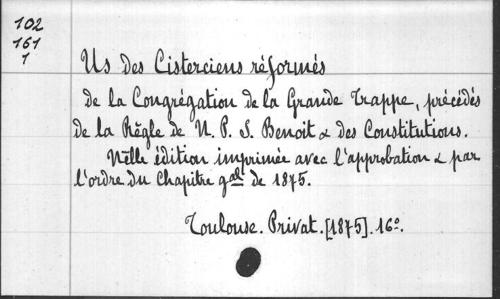 102
161
1
Us des Cisterciens réformés
de la Congrégation de la Grande Trappe, précédés
de la Règle de N. P. S. Benoit & des Constitutions.
Nelle édition imprimée avec l'approbation & par
l'ordre du Chapitre gal de 1875.
Toulouse. Privat. [1875]. 16º.